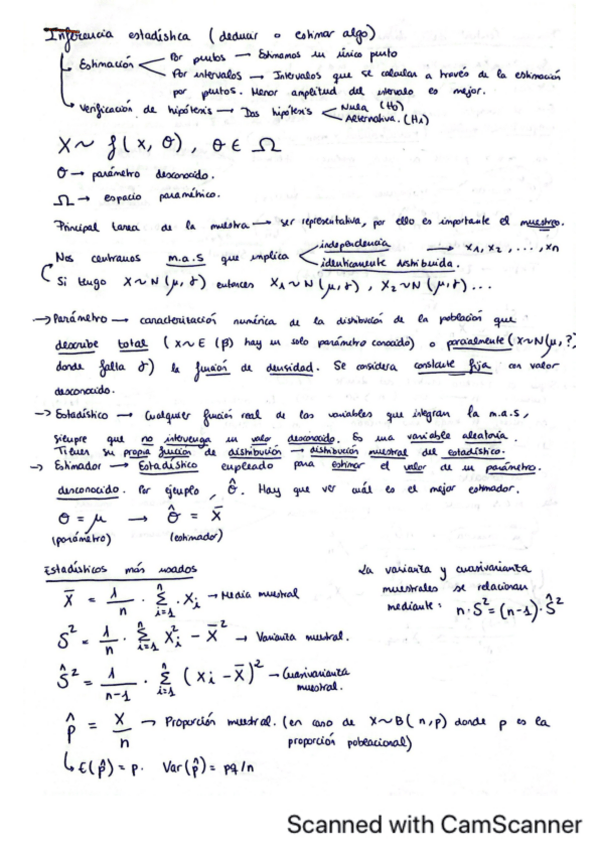 Inferencia estadística (deducir o estimar algo)
Estimación
Por puntos → Estimamos un único punto
Por intervalos → Intervalos que se calculan a través de la estimación
por puntos. Menor amplitud del intervalo es mejor.
Verificación de hipótesis → Dos hipótesis
Nula (H0)
Alternativa. (H1)
X ~ f(x, θ), θ ∈ Ω
θ → parámetro desconocido.
Ω → espacio paramétrico.
Principal tarea de la muestra → ser representativa, por ello es importante el muestreo.
Nos centramos m.a.s que implica
independencia → X1, X2, ..., Xn
identicamente distribuida.
Si tengo X~N(μ, σ) entonces X1~N(μ, σ), X2~N(μ, σ)...
→ Parámetro → caracterización numérica de la distribución de la población que
describe total (X~E(β) hay un solo parámetro conocido) o parcialmente (X~N(μ, ?)
donde falta σ) la función de densidad. Se considera constante fija con valor
desconocido.
→ Estadístico → Cualquier función real de las variables que integran la m.a.s,
siempre que no intervenga un valor desconocido. Es una variable aleatoria.
Tienen su propia función de distribución → distribución muestral del estadístico.
→ Estimador → Estadístico empleado para estimar el valor de un parámetro.
desconocido. Por ejemplo, θ̂. Hay que ver cuál es el mejor estimador.
θ = μ → θ̂ = X̄
(parámetro) (estimador)
Estadísticos más usados
X̄ = 1/n · Σ(i=1, n) · Xi → Media muestral
S² = 1/n · Σ(i=1, n) Xi² - X̄² → Varianza muestral.
Ŝ² = 1/(n-1) · Σ(i=1, n) (Xi - X̄)² → Cuasivarianza muestral.
p̂ = X/n → Proporción muestral. (en caso de X~B(n,p) donde p es la
proporción poblacional)
↳ E(p̂) = p. Var(p̂) = pq/n
La varianza y cuasivarianza
muestrales se relacionan
mediante: n·S² = (n-1)·Ŝ²
Scanned with CamScanner